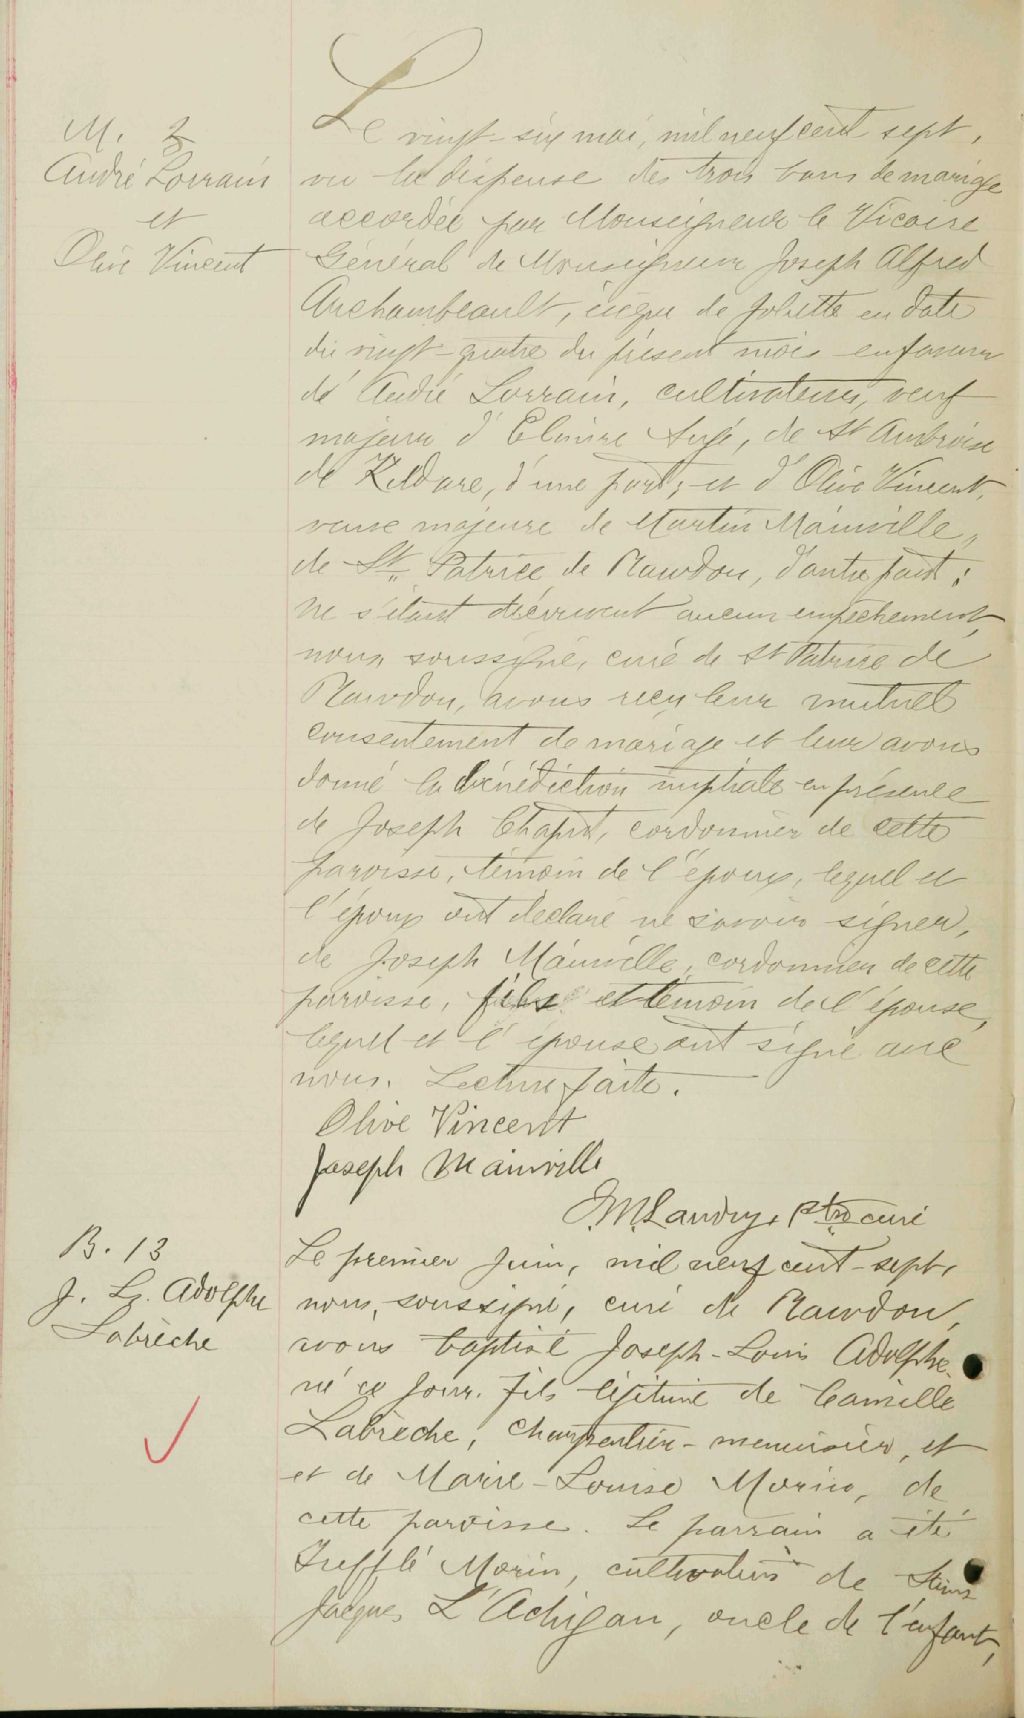 M. 2
André Lorrain
et
Olive Vincent
Le vingt-six mai, mil neuf cent sept,
vu la dispense des trois bans de mariage
accordée par Monseigneur le Vicaire
Général de Monseigneur Joseph Alfred
Archambeault, évêque de Joliette en date
du vingt-quatre du présent mois en faveur
de André Lorrain, cultivateur, veuf
majeur d'Elmire Augé, de St Ambroise
de Kildare, d'une part; et d'Olive Vincent,
veuve majeure de Martin Mainville,
de St Patrice de Rawdon, d'autre part;
Ne s'étant découvert aucun empêchement,
nous, soussigné, curé de St Patrice de
Rawdon, avons reçu leur mutuel
consentement de mariage et leur avons
donné la bénédiction nuptiale en présence
de Joseph Chaput, cordonnier de cette
paroisse, témoin de l'époux, lequel et
l'époux ont déclaré ne savoir signer,
de Joseph Mainville, cordonnier de cette
paroisse, fils et témoin de l'épouse,
lequel et l'épouse ont signé avec
nous. Lecture faite.
Olive Vincent
Joseph Mainville
J.M. Landry, ptre curé
B. 13
J. Ls. Adolphe
Labrèche
Le premier Juin, mil neuf cent-sept,
nous, soussigné, curé de Rawdon,
avons baptisé Joseph-Louis Adolphe
né ce jour. fils légitime de Camille
Labrèche, charpentier-menuisier, et
et de Marie-Louise Morin, de
cette paroisse. Le parrain a été
Trefflé Morin, cultivateur de Saint
Jacques L'Achigan, oncle de l'enfant,